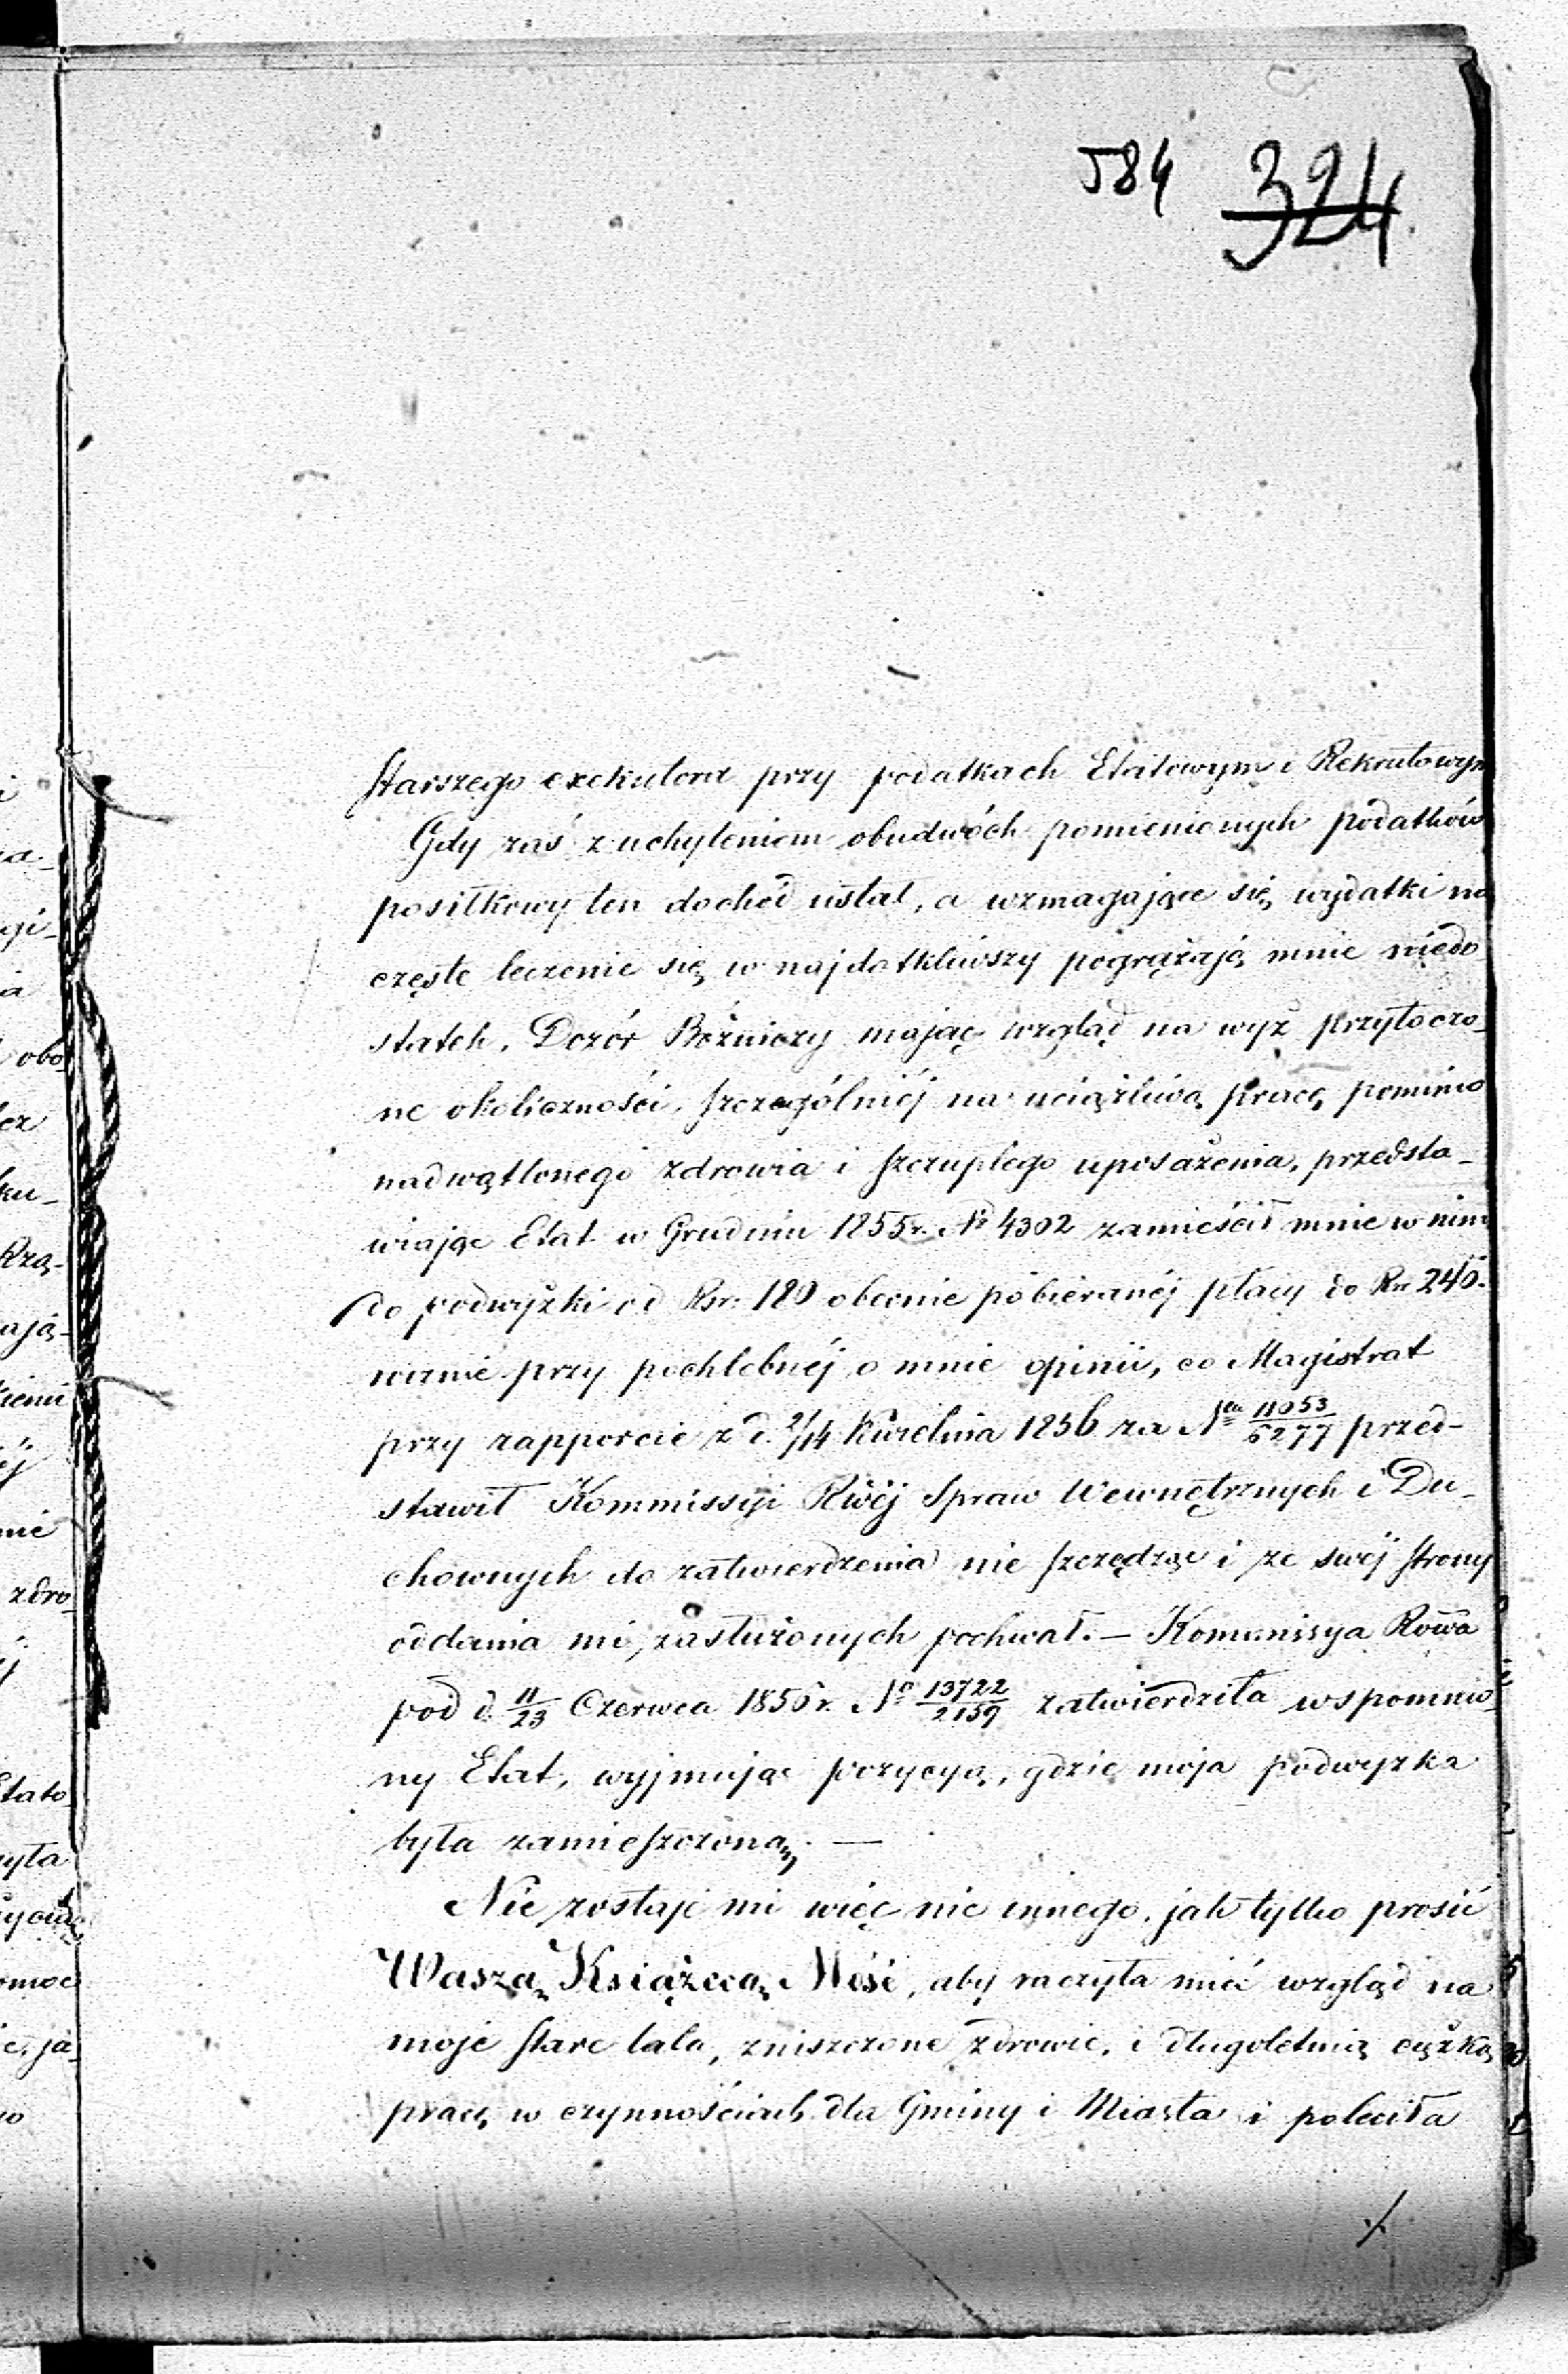 584 324
starszego exekutora przy podatkach Etatowym i Rekrutowym
Gdy zaś z uchyleniem obudwóch pomienionych podatków
posiłkowy ten dochód ustał, a wzmagające się wydatki na
częste leczenie się w najdotkliwszy pogrążają mnie niedo
statek. Dozór Bóżniczy mając wzgląd na wyż przytoczo_
ne okoliczności, szczególniéj na uciążliwą pracę pomimo
nadwątlonego zdrowia i szczupłego uposażenia, przedsta_
wiając Etat w Grudniu 1855r. № 4302 zamieścił mnie w nim
do podwyżki od Rsr: 180 obecnie pobieranéj płacy do Rsr 240.
przy pochlebnéj o mnie opinii, co Magistrat
przy rapporcie z d. 2/14 Kwietnia 1856 za N 11053/6277 przed-
stawił Kommissyi Rwéj Spraw Wewnętrznych i Du_
chownych do zatwierdzenia nie szczędząc i ze swéj strony
oddania mi, zasłużonych pochwał. — Kommissya Rowa
pod d. 11/23 Czerwca 1856 r. № 13722/2159 zatwierdziła wspomnio_
ny Etat, wyjmując pozycyą, gdzie moja podwyżka
była zamieszczoną. —
Nie zostaje mi więc nic innego, jak tylko prosić
Waszą Książęcą Mość, aby raczyła mieć wzgląd na
moje stare lata, zniszczone zdrowie, i długoletnią ciężką
pracę w czynnościach dla Gminy i Miasta i poleciła
./.